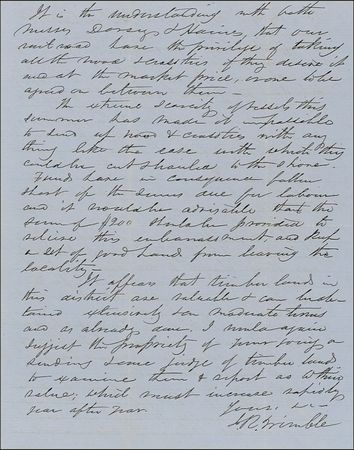 It is the understanding with both
Messrs Dorsey & Haine, that our
rail road have the privilege of taking
all the wood & crossties if they desire it
and at the market price, or one to be
agreed on between them -
The extreme scarcity of vessels this
summer has made it impossible
to send up wood & crossties with any
thing like the ease with which they
could be cut & hauled to the shore.
Funds have in consequence fallen
short of the sums due for labour
and it would be advisable that the
sum of $200 should be provided to
relieve this embarrassment, and keep
a set of good hands from leaving the
locality -
It appears that timber lands in
this district are valuable & can be
found & on moderate terms
and as already done. I would again
suggest the propriety of your going or
sending some judge of timber lands
to examine them & report as to their
value; which must increase rapidly
year after year.
Yours &c -
I R Trimble